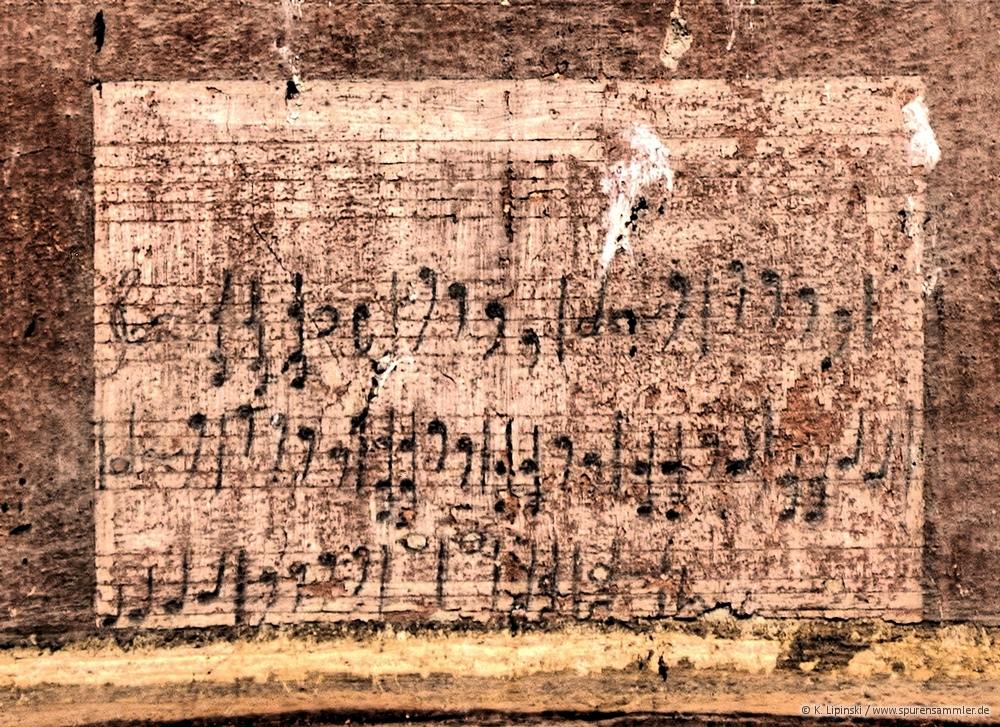 © K. Lipinski / www.spurensammler.de